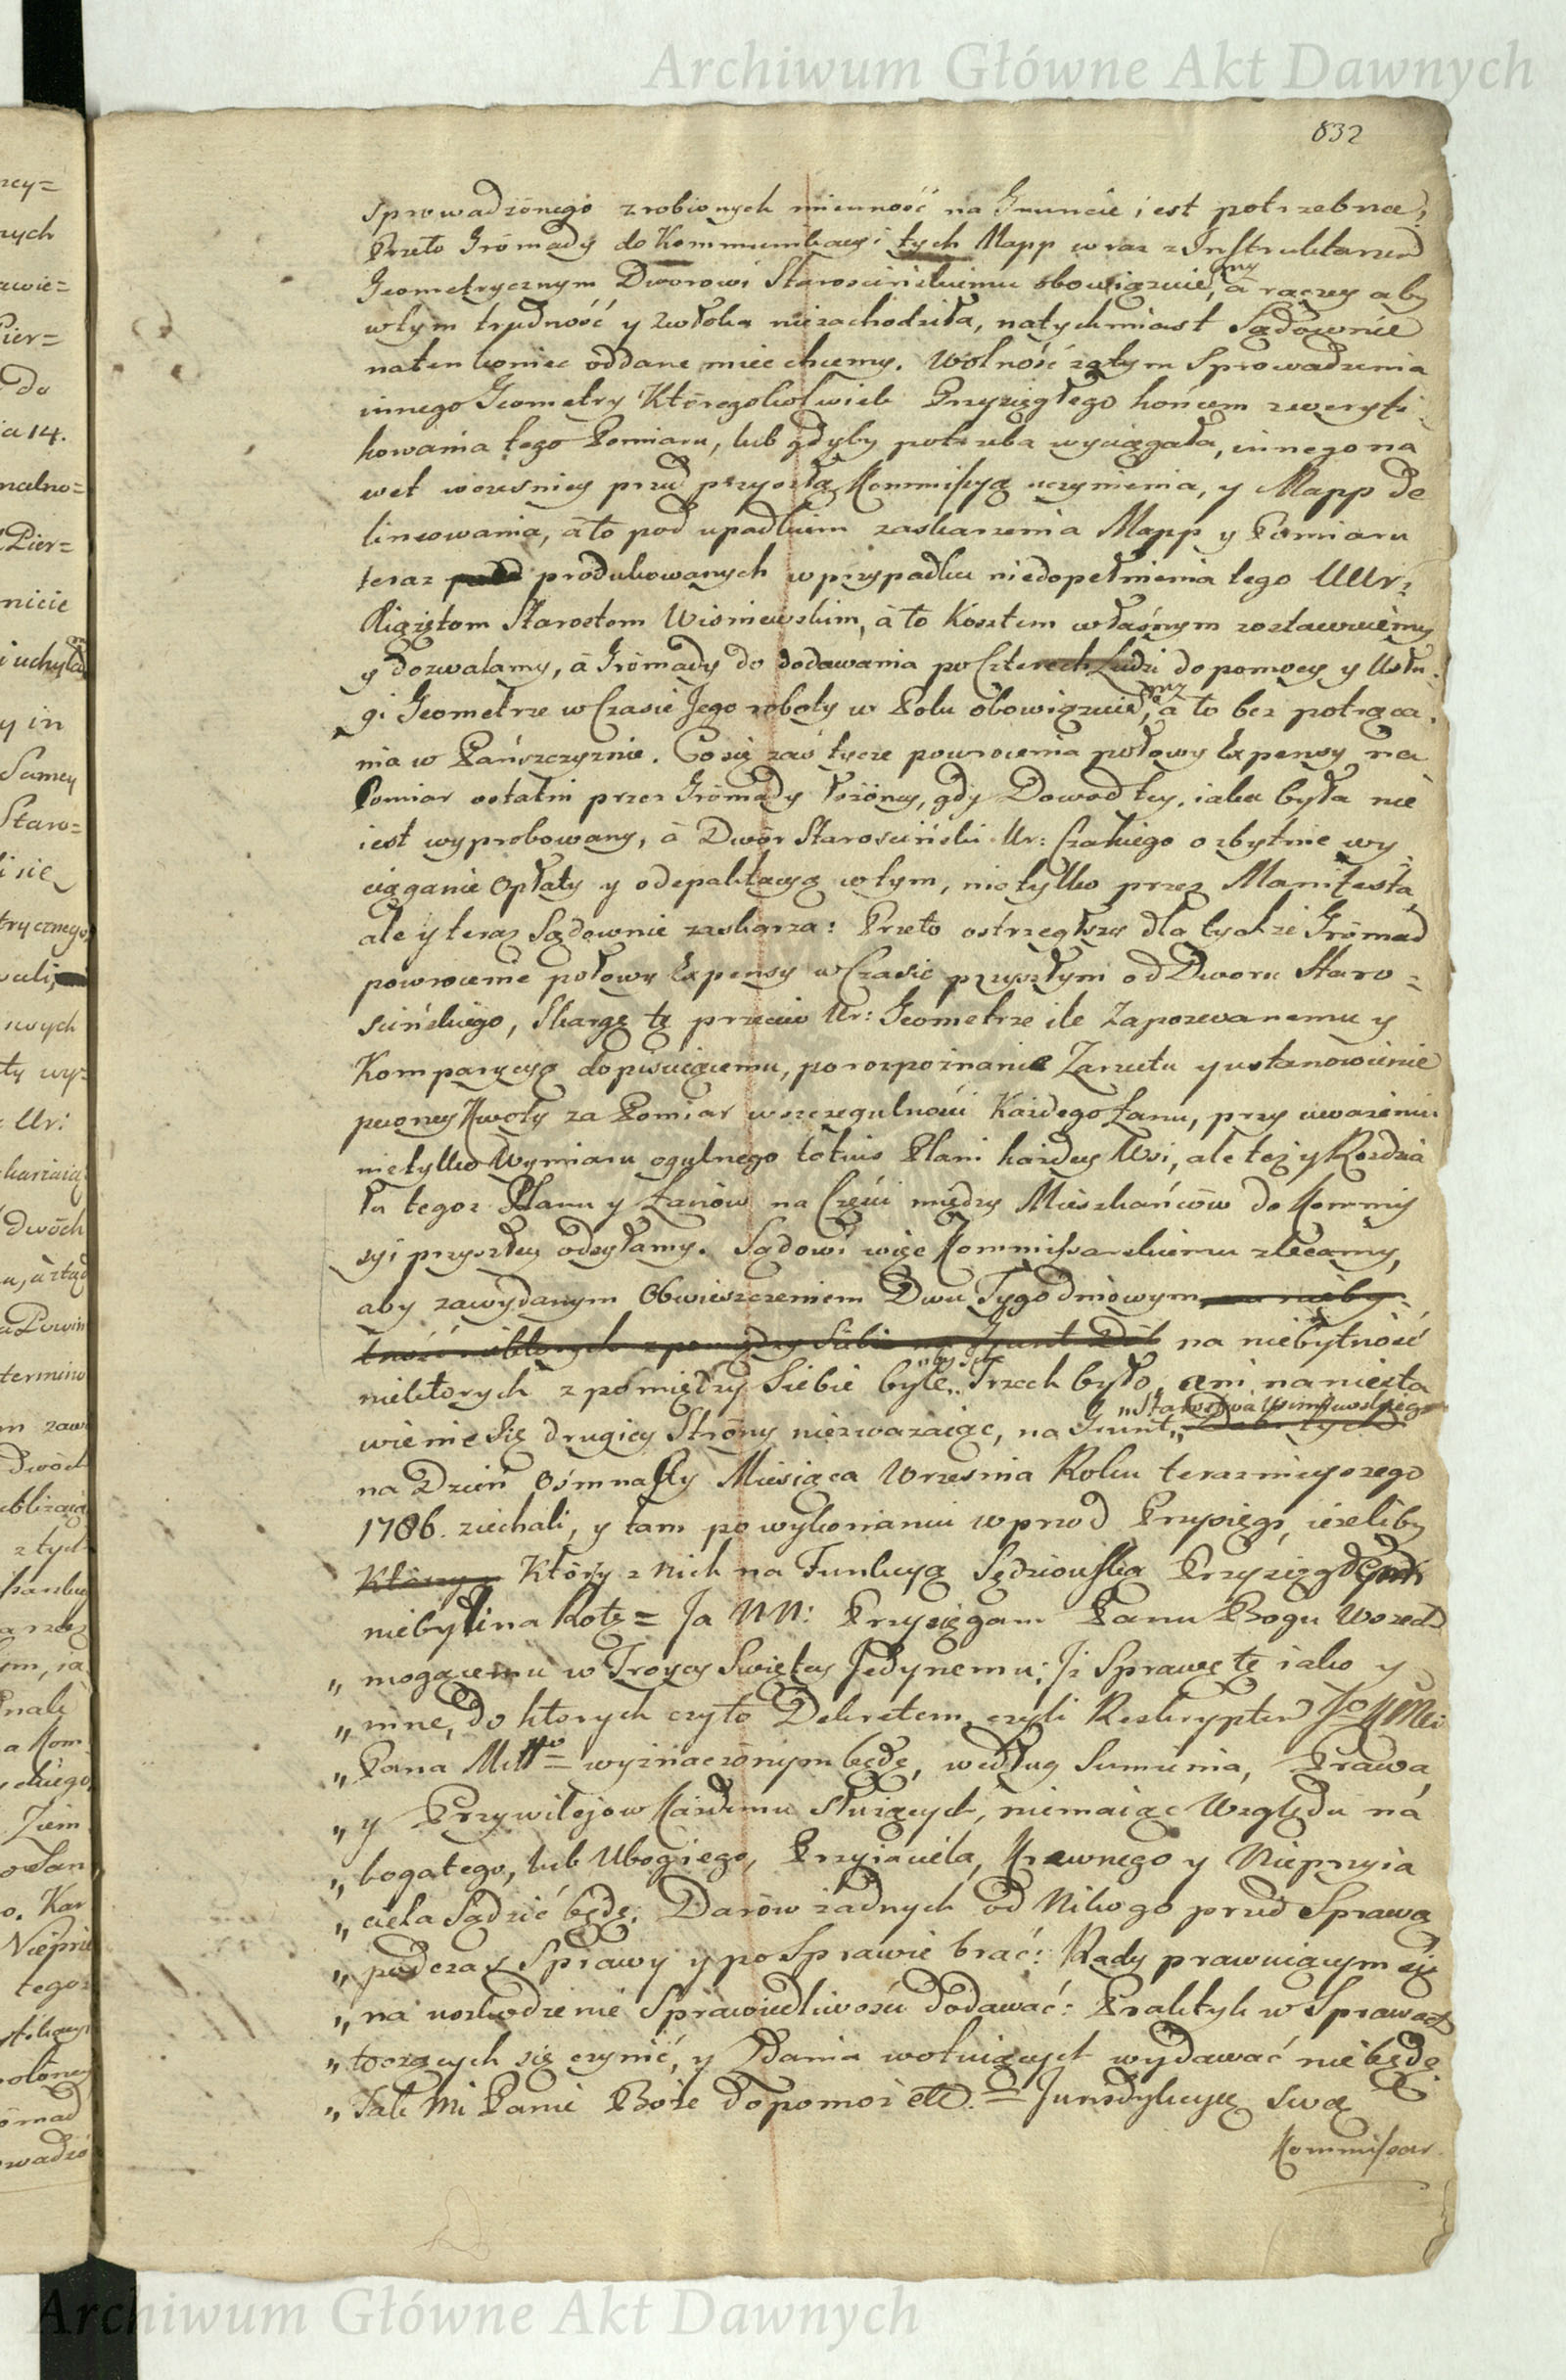 Archiwum Główne Akt Dawnych
832
sprowadzonego zrobionych mienność na Gruncie iest potrzebna,
Przeto Gromady do Kommunikacyi tych Mapp wraz z Instruktarzem
Geometrycznym Dworowi Starościńskiemu obowiązuie,my à raczey aby
wtym trudność y zwłoka niezachodziła, natychmiast Sądownie
naten koniec oddane mieć chcemy. Wolność zatym Sprowadzenia
innego Geometry Któregokolwiek Przysięgłego końcem zweryfi
kowania tego Pomiaru, lub gdyby potrzeba wyciągała, innego na
wet wcześniey przed przyszłą Kommissyą uczynienia, y Mapp de
lineowania, à to pod upadkiem zaskarżenia Mapp y Pomiaru
teraz produkowanych w przypadku niedopełnienia tego UUr:
Xiążętom Starostom Wiśniewskim, à to Kosztem własnym zostawuiemy
y dozwalamy, à Gromady do dodawania po Czterech Ludzi do pomocy y Usłu-
gi Geometrze w Czasie Jego roboty w Polu obowiązuie,my à to bez potrąca-
nia w Pańszczyznie. Co się zaś tycze powrocenia połowy Expensy na
Pomiar ostatni przez Gromady łożoney, gdy Dowod tey, iaka była nie
iest wyprobowany, à Dwór Starościński Ur: Czakiego o zbytnie wy-
ciąganie Opłaty y odepaktacyą wtym, nietylko przez Manifesta,
ale y teraz Sądownie zaskarza: Przeto ostrzegłszy dla tychże Gromad
powrocenie połowy Expensy w Czasie przyszłym od Dworu Staro-
scińskiego, Skargę tę przeciw Ur: Geometrze ile Zapozwanemu y
Komparycyą dopisuiącemu, po rozpoznanie Zarzutu y ustanowienie
pewney Kwoty za Pomiar wszczegulności Każdego Łanu, przy uważeniu
nietylko Wymiaru ogulnego totius Plani każdey Wsi, ale też y Rozdzia
łu tegoż Planu y Łanów na Części między Mieszkańców do Kommis
syi przyszłey odsyłamy. Sądowi więc Kommissarskiemu zlecamy,
aby zawydanym Obwieszczeniem Dwu Tygodniowym na nieby-
tność niektorych z pomiędzy Siebie na Grunt Dóbr na niebytność
niektorych z pomiędzy Siebie byle „by ich„ Trzech było, ani na niesta
wienie się drugiey Strony niezważaiąc, na Grunt, „Starostwa Wiśniewskiego Dóbr tych
na Dzień Ośmnasty Miesiąca Września Roku teraznieyszego
1786. ziechali, y tam po wykonaniu wprzod Przysięgi, ieżeliby
Którzy z Który z nich na Funkcyą Sędziowską Przysięgłym
niebyli na Rotę = Ja NN: Przysięgam Panu Bogu Wszech
„ mogącemu w Troycy Swiętey Jedynemu: Jż Sprawę tę iako y
„ inne, do ktorych czyto Dekretem czyli Reskryptem JoKMci
„ Pana Miłłgo wyznaczonym będę, według Sumienia, Prawa,
„ y Przywilejow Każdemu służących, niemaiąc Względu na
„ bogatego, lub Ubogiego, Przyiaciela, Krewnego y Nieprzyia
„ ciela Sądzić będę: Darów żadnych od Nikogo przed Sprawą
„ podczas Sprawy y po Sprawie brać: Rady prawuiącym się
„ na uszkodzenie Sprawiedliwości dodawać: Praktyk w Sprawach
„ toczących się czynić, y Zdania wotuiących wydawać niebędę.
„ Tak Mi Panie Boże dopomoż etc. = Jurisdykcyę swą
Kommissar-
Archiwum Główne Akt Dawnych